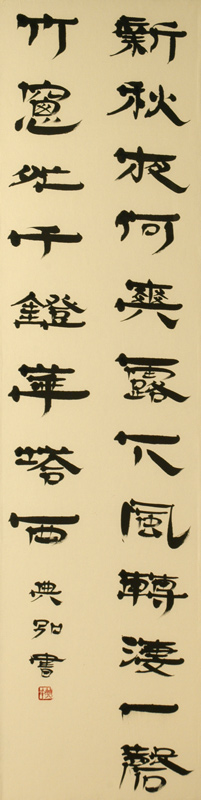 新秋夜何爽露下風轉淒一磬
竹窻外千鐙華塔西
典弘書